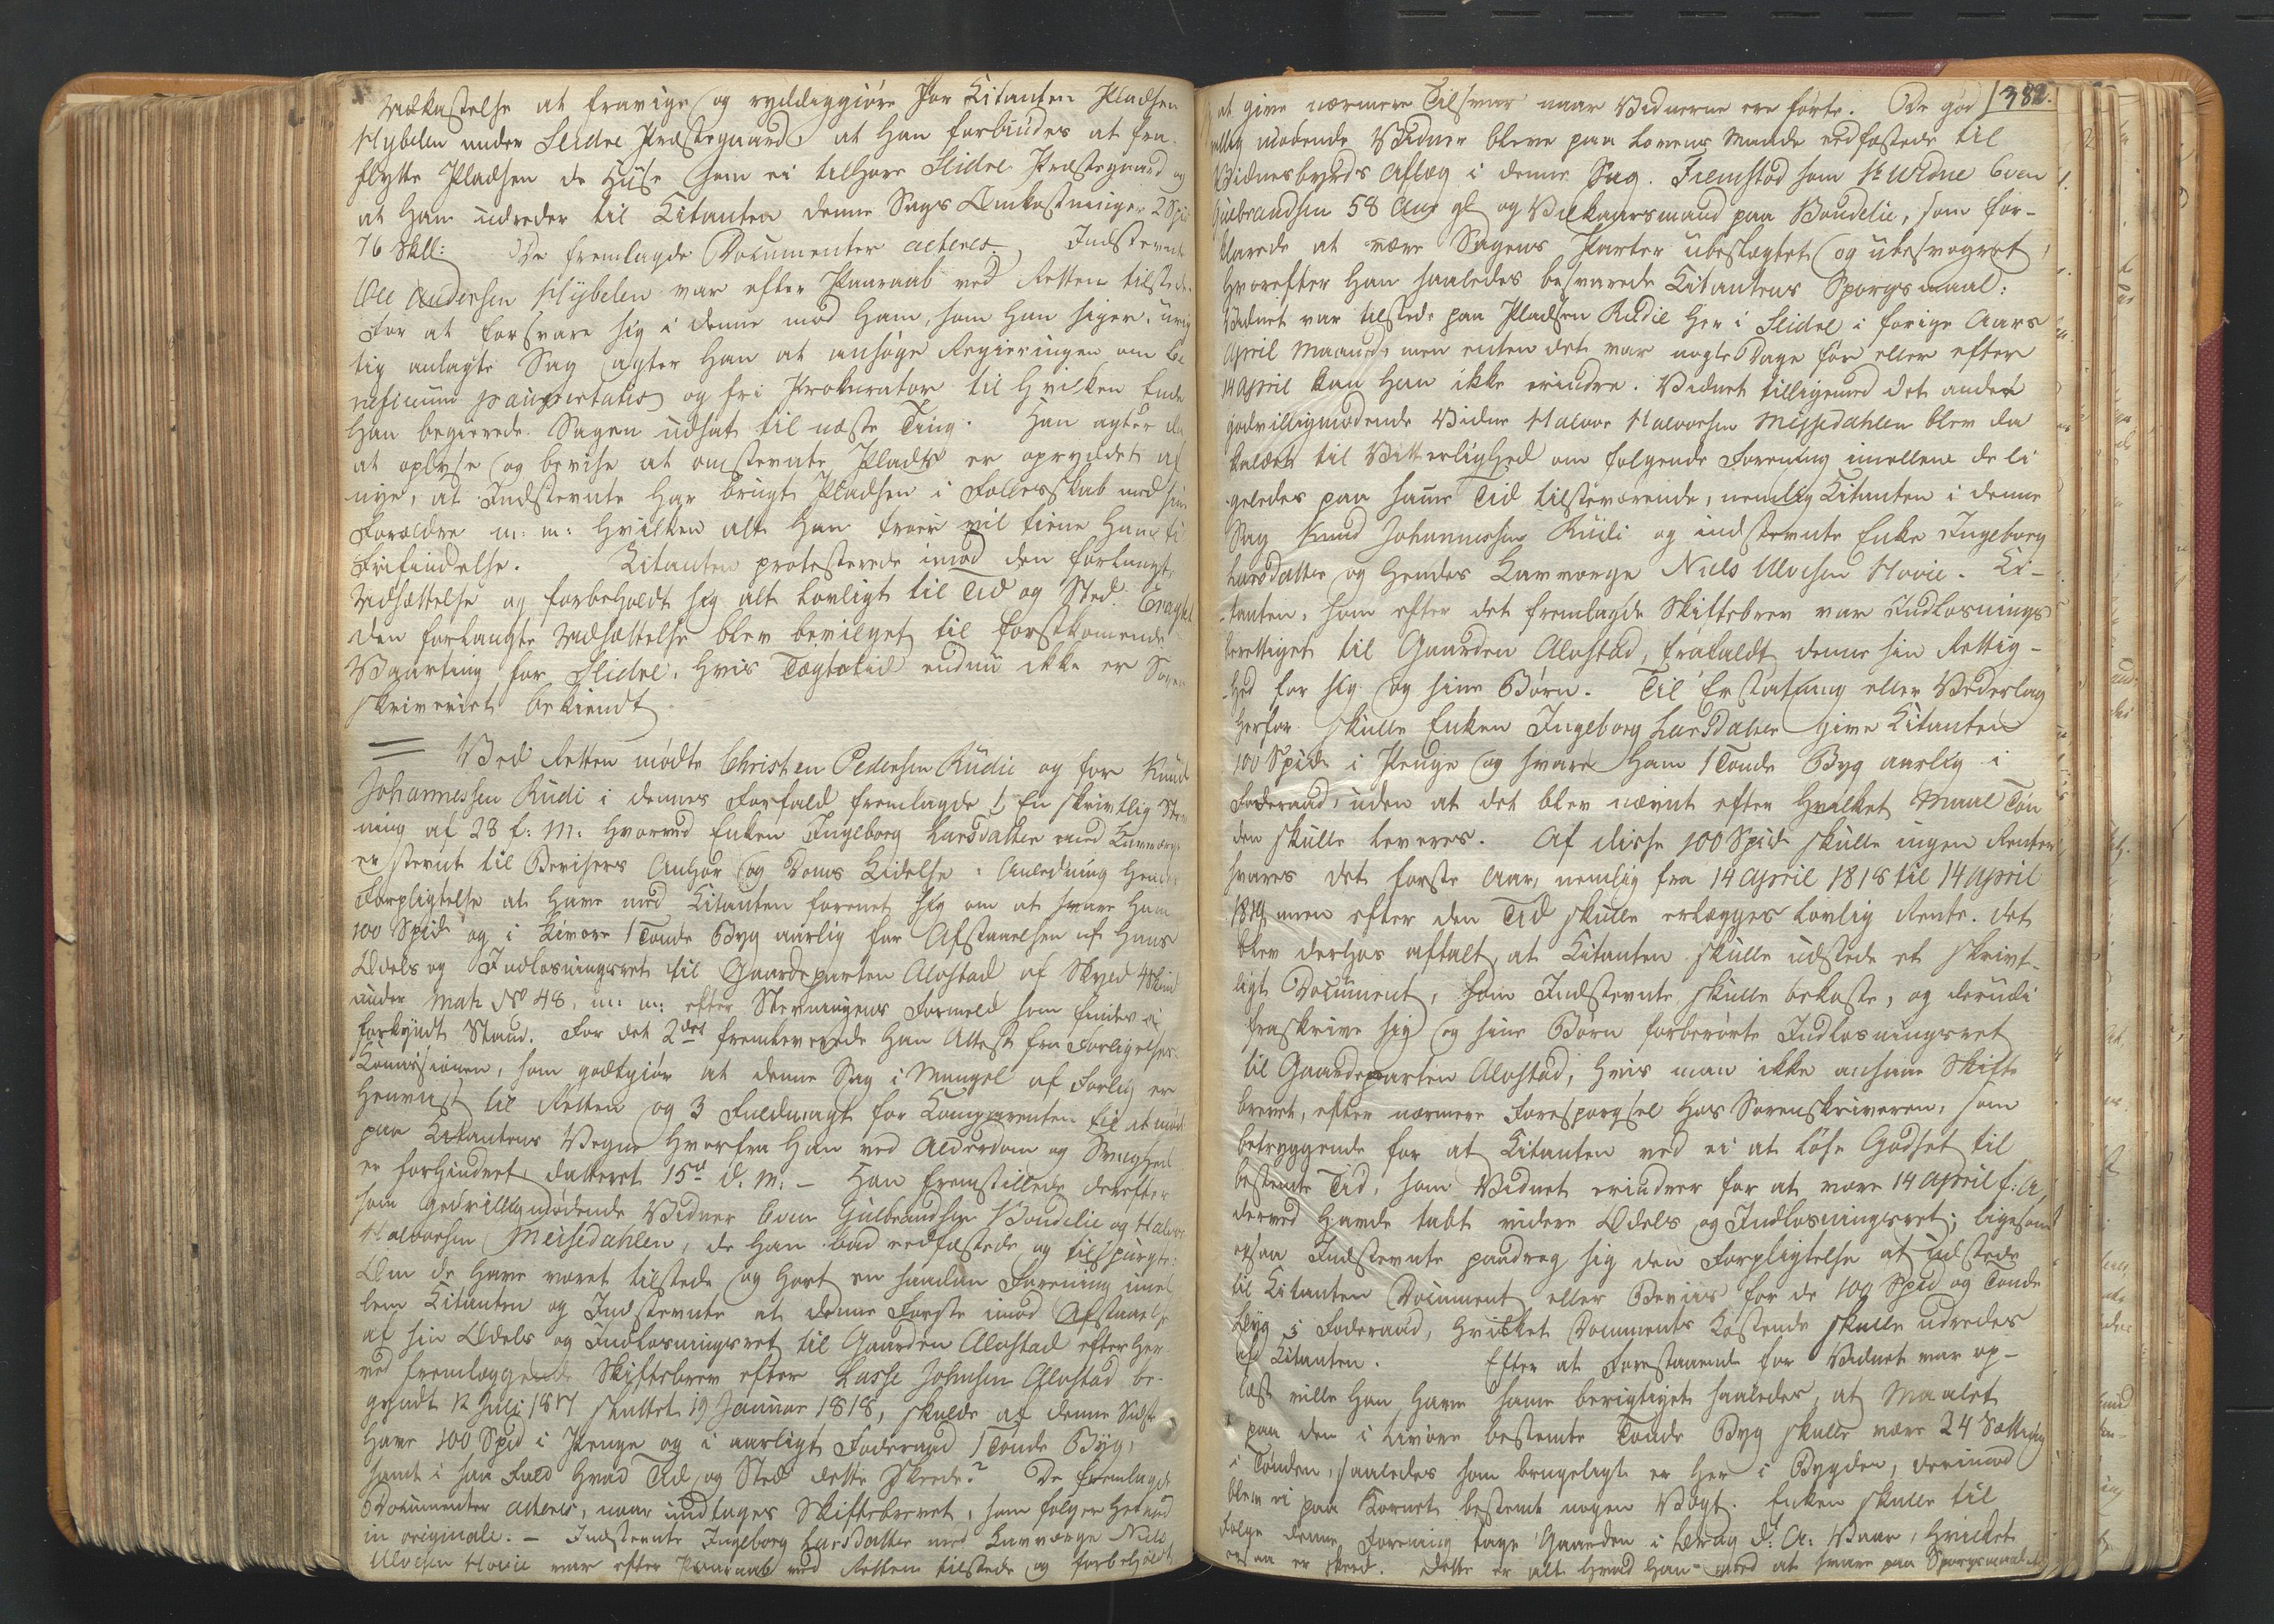 Udkastelse at fravige og ryddiggiöre for Citanten Pladsen
Klybelen under Slidre Præstegaard, at Han forbindes at fra
flytte Pladsen de Huse som ei tilhøre Slidre Præstegaard og
at Han udreder til Citanten denne Sags Omkostninger 2 Spd
76 Skll: De fremlagde Documenter acteres. Indstevnte
Ole Andersen Klybelen var efter Paaraab ved Retten tilstede.
For at forsvare sig i denne mod Ham, som Han siger, urig
tig anlagte Sag agter Han at ansøge Regieringen om be
neficium paupertatis og fri Prokurator til hvilken Ende
Han begierede Sagen udsat til næste Ting. Han agter da
at oplyse og bevise at omstevnte Plads er opryddet af
nye, at Indstevnte har brugt Pladsen i Fællesskab med sine
Forældre m: m: hvilken alt Han troer vil tiene Ham til
Frifindelse. Citanten protesterede imod den forlangte
Udsættelse og forbeholdt sig alt lovligt til Tid og Sted. Eragtet
den forlangte Udsættelse blev bevilget til førstkomende
Vaarting for Slidre, hvis Tægtetid endnu ikke er Soren
skriveriet bekiendt
Ved Retten mødte Christen Pedersen Rudie og for Knud
Johannessen Rudi i dennes Forfald fremlagde 1 En skrivtlig Stev
ning af 28 f: M: hvorved Enken Ingeborg Larsdatter med Lavværge
er stevnt til Bevisers Anhør og Doms Lidelse i Anledning Hendes
Forpligtelse at have med Citanten forenet sig om at svare Ham
100 Spd og i Livøre 1 Tønde Byg aarlig for Afstaaelsen af Hans
Odels og Indløsningsret til Gaardeparten Alostad af Skyld 4 Skind
under Mat: No 48, m: m: efter Stevningens Formeld som findes
forkyndt Staaed. For det 2det fremleverede Han Attest fra Forligelses
Comissionen, som godtgiør at denne Sag i Mangel af Forlig er
henvist til Retten og 3 Fuldmagt for Comparenten til at møde
paa Citantens Vegne hvorfra Han ved Alderdom og Svaghed
er forhindret dateret 15de d: M: – Han fremstillede derefter
som godvilligmødende Vidner Even Gulbrandsen Boudelie og Halvor
Halvorsen Meisedahlen, de Han bad eedfæstede og tilspurgte:
Om de have været tilstede og hørt en saadan Forening imel
lem Citanten og Indstevnte at denne Første imod Afstaaelse
af sin Odels og Indløsningsret til Gaarden Alostad efter her
ved fremlæggende Skiftebrev efter Lasse Johnsen Alostad be
gyndt 12 Juli 1817 sluttet 19 Januar 1818, skulde af denne Sidste
have 100 Spd i Penge og i aarligt Føderaad 1 Tønde Byg,
samt i saa Fald hvad Tid og Sted dette skeede? De fremlagde
Documenter acteres, naar undtages Skiftebrevet, som følger herved
in originale. – Indstevnte Ingeborg Larsdatter med Lavværge Niels
Ulvesen Hovie var efter Paaraab ved Retten tilstede og forbeholdt
382.
at give nærmere Tilsvar naar Vidnerne ere førte. De god
villig mødende Vidner bleve paa Lovens Maade eedfæstede til
Vidnesbyrds Aflæg i denne Sag. Fremstod som 1te Vidne Even
Gulbrandsen 58 Aar gl og Vilkaarsmand paa Boudelie, som for-
klarede at være Sagens Parter ubeslægtet og ubesvogret,
hvorefter Han saaledes besvarede Citantens Spørgsmaal:
Vidnet var tilstede paa Pladsen Rudie her i Slidre i forige Aars
April Maaned, men enten det var nogle Dage før eller efter
14 April kan Han ikke erindre. Vidnet tilligemed det andet
godvilligmødende Vidne Halvor Halvorsen Meisedahlen blev da
kaldet til Vitterlighed om følgende Forening imellem de li
geledes paa same Tid tilstæværende, nemlig Citanten i denne
Sag Knud Johannessen Rudi og indstevnte Enke Ingeborg
Larsdatter og Hendes Lavværge Niels Ulvesen Hovie. Ci-
tanten, som efter det fremlagde Skiftebrev var Indløsnings
berettiget til Gaarden Alostad, frafaldt denne sin Rettig-
hed for sig og sine Børn. Til Erstatning eller Vederlag
herfor skulle Enken Ingeborg Larsdatter give Citanten
100 Spd i Penge og svare Ham 1 Tønde Byg aarlig i
Føderaad, uden at det blev nævnt efter hvilket Maal Tøn
den skulle leveres. Af disse 100 Spd skulle ingen Renter
svares det første Aar, nemlig fra 14 April 1818 til 14 April
1819, men efter den Tid skulle erlægges lovlig Rente. Det
blev derhos aftalt, at Citanten skulle udstede et skrivt-
ligt Document, som Indstevnte skulle bekoste, og derudi
fraskrive sig og sine Børn forberørte Indløsningsret
til Gaardeparten Alostad, hvis man ikke ansaae Skifte
brevet, efter nærmere Forespørgsel hos Sorenskriveren, som
betryggende for at Citanten ved ei at løse Godset til
bestemte Tid, som Vidnet erindrer for at være 14 April f: A,
derved havde tabt videre Odels og Indløsningsret; ligesom
ogsaa Indstevnte paadrog sig den Forpligtelse at udstede
til Citanten Document eller Beviis for de 100 Spd og Tønde
Byg i Føderaad, hvilket Documents Kostende skulle udredes
af Citanten. Efter at Forestaaende for Vidnet var op-
læst ville Han have same berigtiget saaledes, at Maalet
paa den i Livøre bestemte Tønde Byg skulle være 24 Sætting
i Tønden, saaledes som brugeligt er her i Bygden, derimod
blev ei paa Kornet bestemt nogen Vægt. Enken skulle til
Følge denne Forening tage Gaarden i Brug d: A: Vaar, hvilket
ogsaa er skeed. Dette er alt hvad Han ved at svare paa Spørgsmaalet